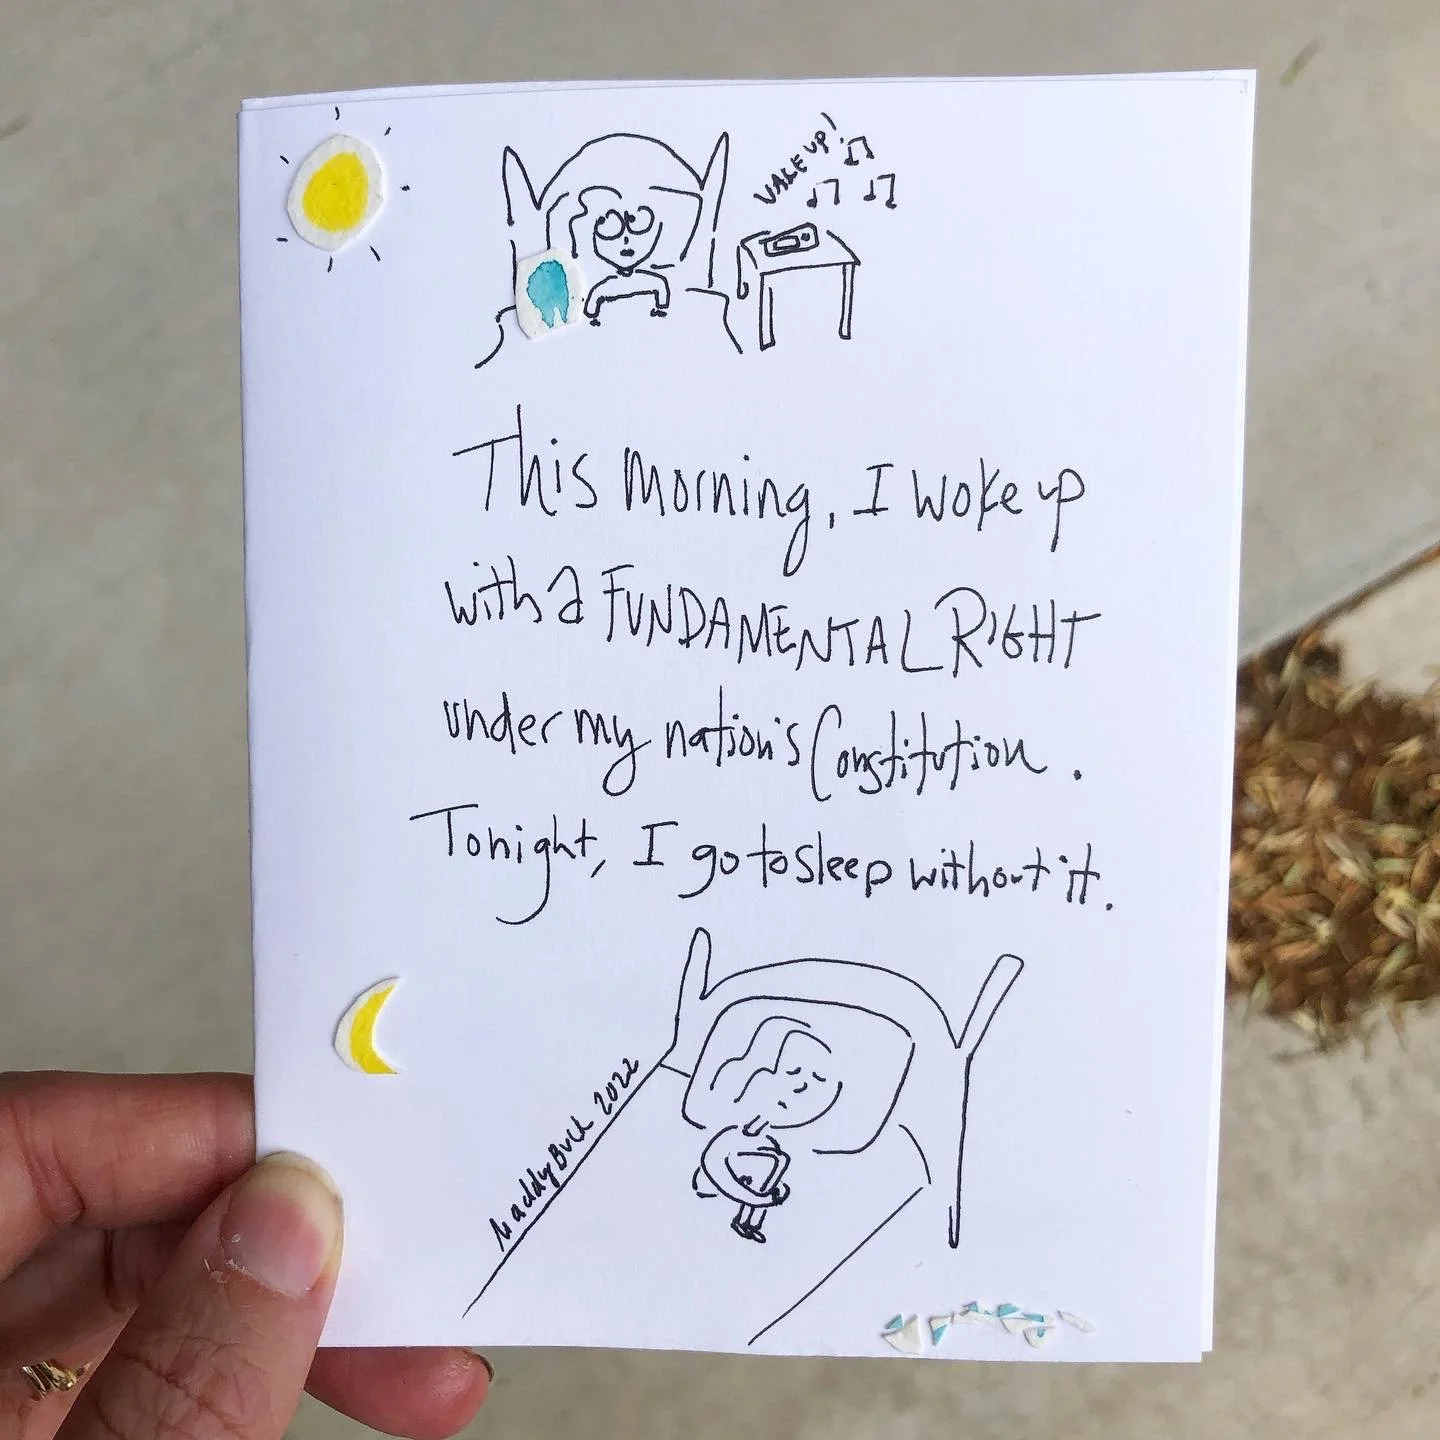 WAKE UP!
This morning, I woke up
with a FUNDAMENTAL RIGHT
under my nation's Constitution.
Tonight, I go to sleep without it.
Maddy Buck 2022